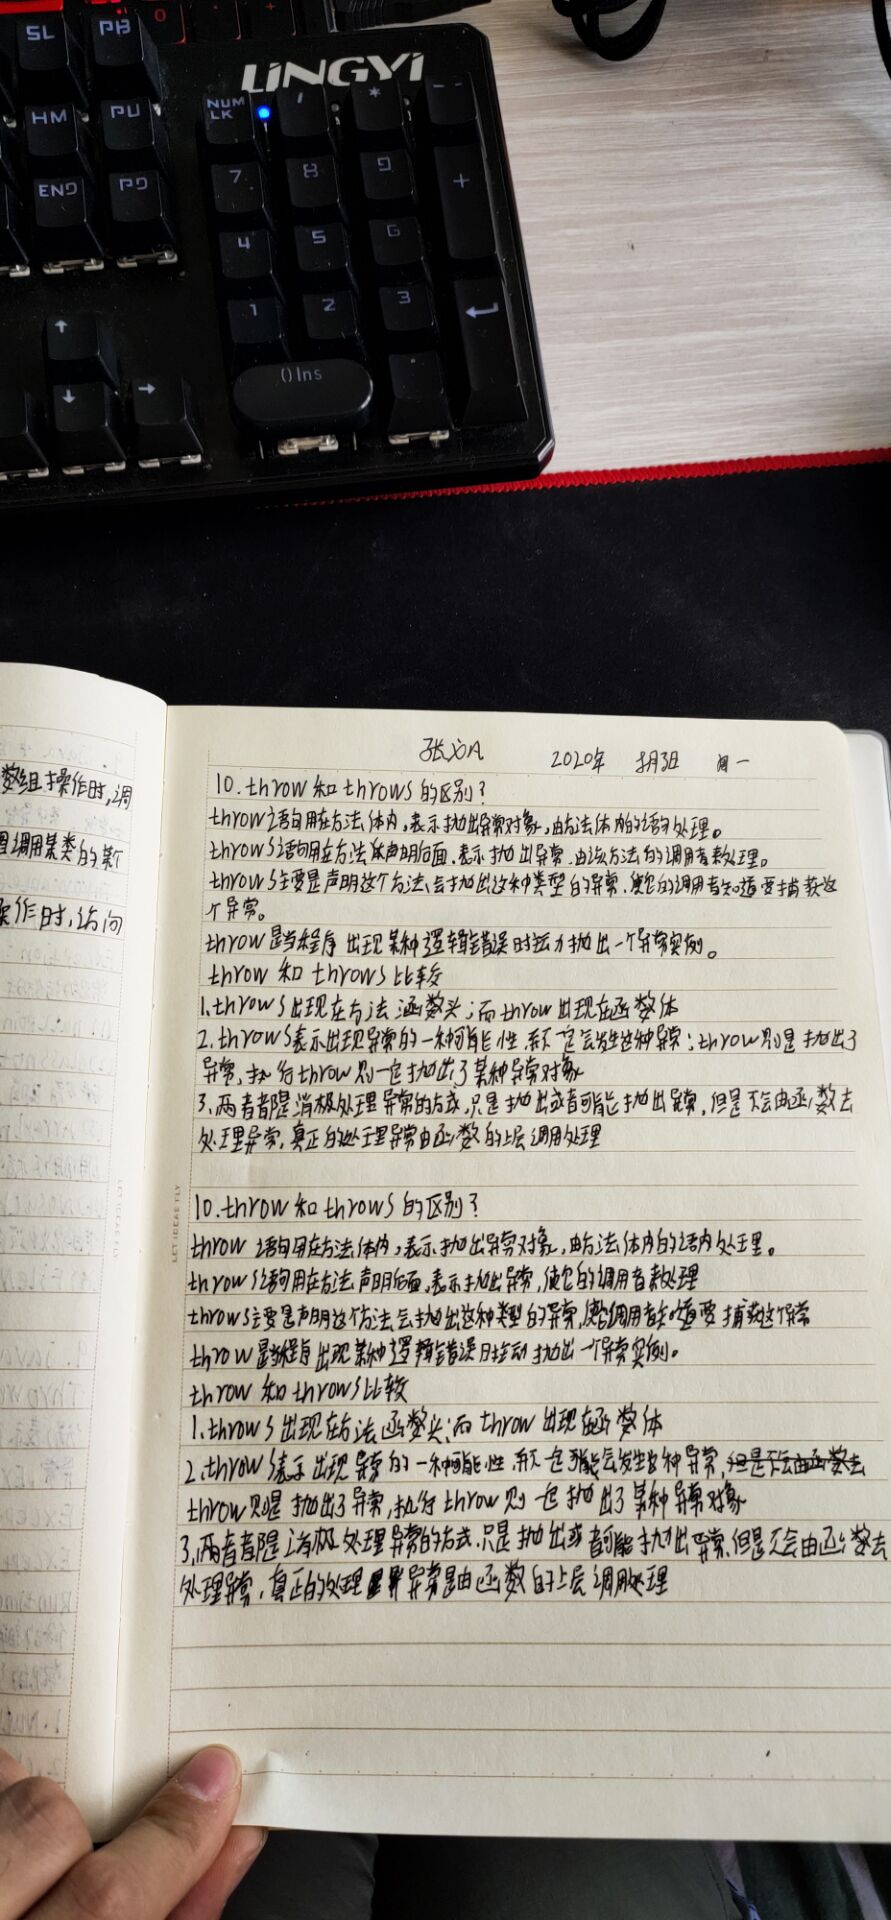 SL
PB
O
LINGYI
HM
PU
NUM
LK
/
*
--
END
PD
7
8
9
+
4
5
6
1
2
3
↑
↓
→
()Ins
.
数组操作时,调
调用某类的某个
操作时,访问
2020年 8月3日 周一
10.throw和throws的区别?
throw语句用在方法体内,表示抛出异常对象,由方法体内的语句处理。
throws语句用在方法体声明后面,表示抛出异常,由该方法的调用者来处理。
throws主要是声明这个方法会抛出这种类型的异常,使它的调用者知道要捕获这
个异常。
throw是当程序出现某种逻辑错误时主动抛出一个异常实例。
throw和throws比较
1.throws出现在方法函数头;而throw出现在函数体
2.throws表示出现异常的一种可能性,不一定会发生这种异常;throw则是抛出了
异常,执行throw则一定抛出了某种异常对象
3.两者都是消极处理异常的方式,只是抛出或者可能抛出异常,但是不会由函数去
处理异常,真正的处理异常由函数的上层调用处理
LET IDEAS FLY
10.throw和throws的区别?
throw语句用在方法体内,表示抛出异常对象,由方法体内的语内处理。
throws语句用在方法声明后面,表示抛出异常,使它的调用者来处理
throws主要是声明这个方法会抛出这种类型的异常,使它调用者知道要捕获这个异常
throw是当程序出现某种逻辑错误时主动抛出一个异常实例。
throw和throws比较
1.throws出现在方法函数头;而throw出现在函数体
2.throws表示出现异常的一种可能性,并不一定可能会发生这种异常,但是不会由函数去
throw则是抛出了异常,执行throw则一定抛出了某种异常对象
3.两者都是消极处理异常的方式,只是抛出或者可能抛出异常,但是不会由函数去
处理异常,真正的处理异常是由函数的上层调用处理